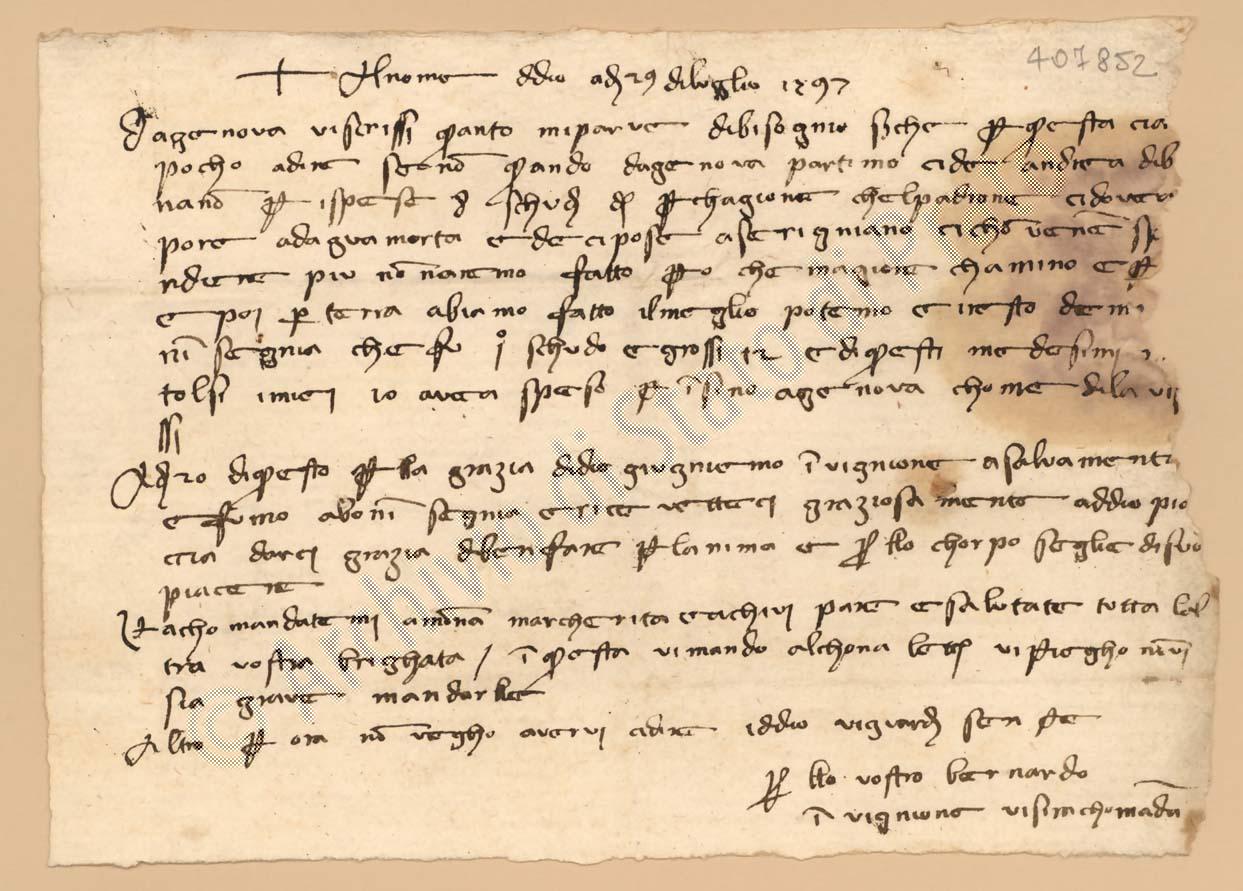 407852
† Al nome di dio adi 29 di luglio 1397
Dagenova viscrissi quanto miparve dibisognio sicche per questa cia
pocho adire senon quando dagenova partimo cide andrea dib
nano per ispese schudi per chagione chelpadrone cidovea
pore adaguamorta edecipose aserigniano cichonvene sp
ndere piu nonaremo fatto pero che magiore chamino e per
epoi per terra abiamo fatto ilmeglio potemo eiresto demi
ni segnia che fu 1° schudo egrossi 12 ediquesti medesimi
tolsi imiei io avea speso per insino agenova chome dila vis
ssi
Adi 20 diquesto per lla grazia didio giugniemo invignione asalvamento
efumo aboninsegnia ericevetteci graziosamente addio pia
ccia darci grazia dibenfare perlanima e per llo chorpo seglie disuo
piacere
Rachomandatemi amona marcherita eachivi pare esalutate tutta lal
tra vostra brighata / inquesta vimando alchona lettera vipriegho novi
sia grave mandarlle
Altro per ora non vegho avervi adire iddio viguardi senpre
per llo vostro bernardo
invignione visirachomanda
© Archivio di Stato di Prato